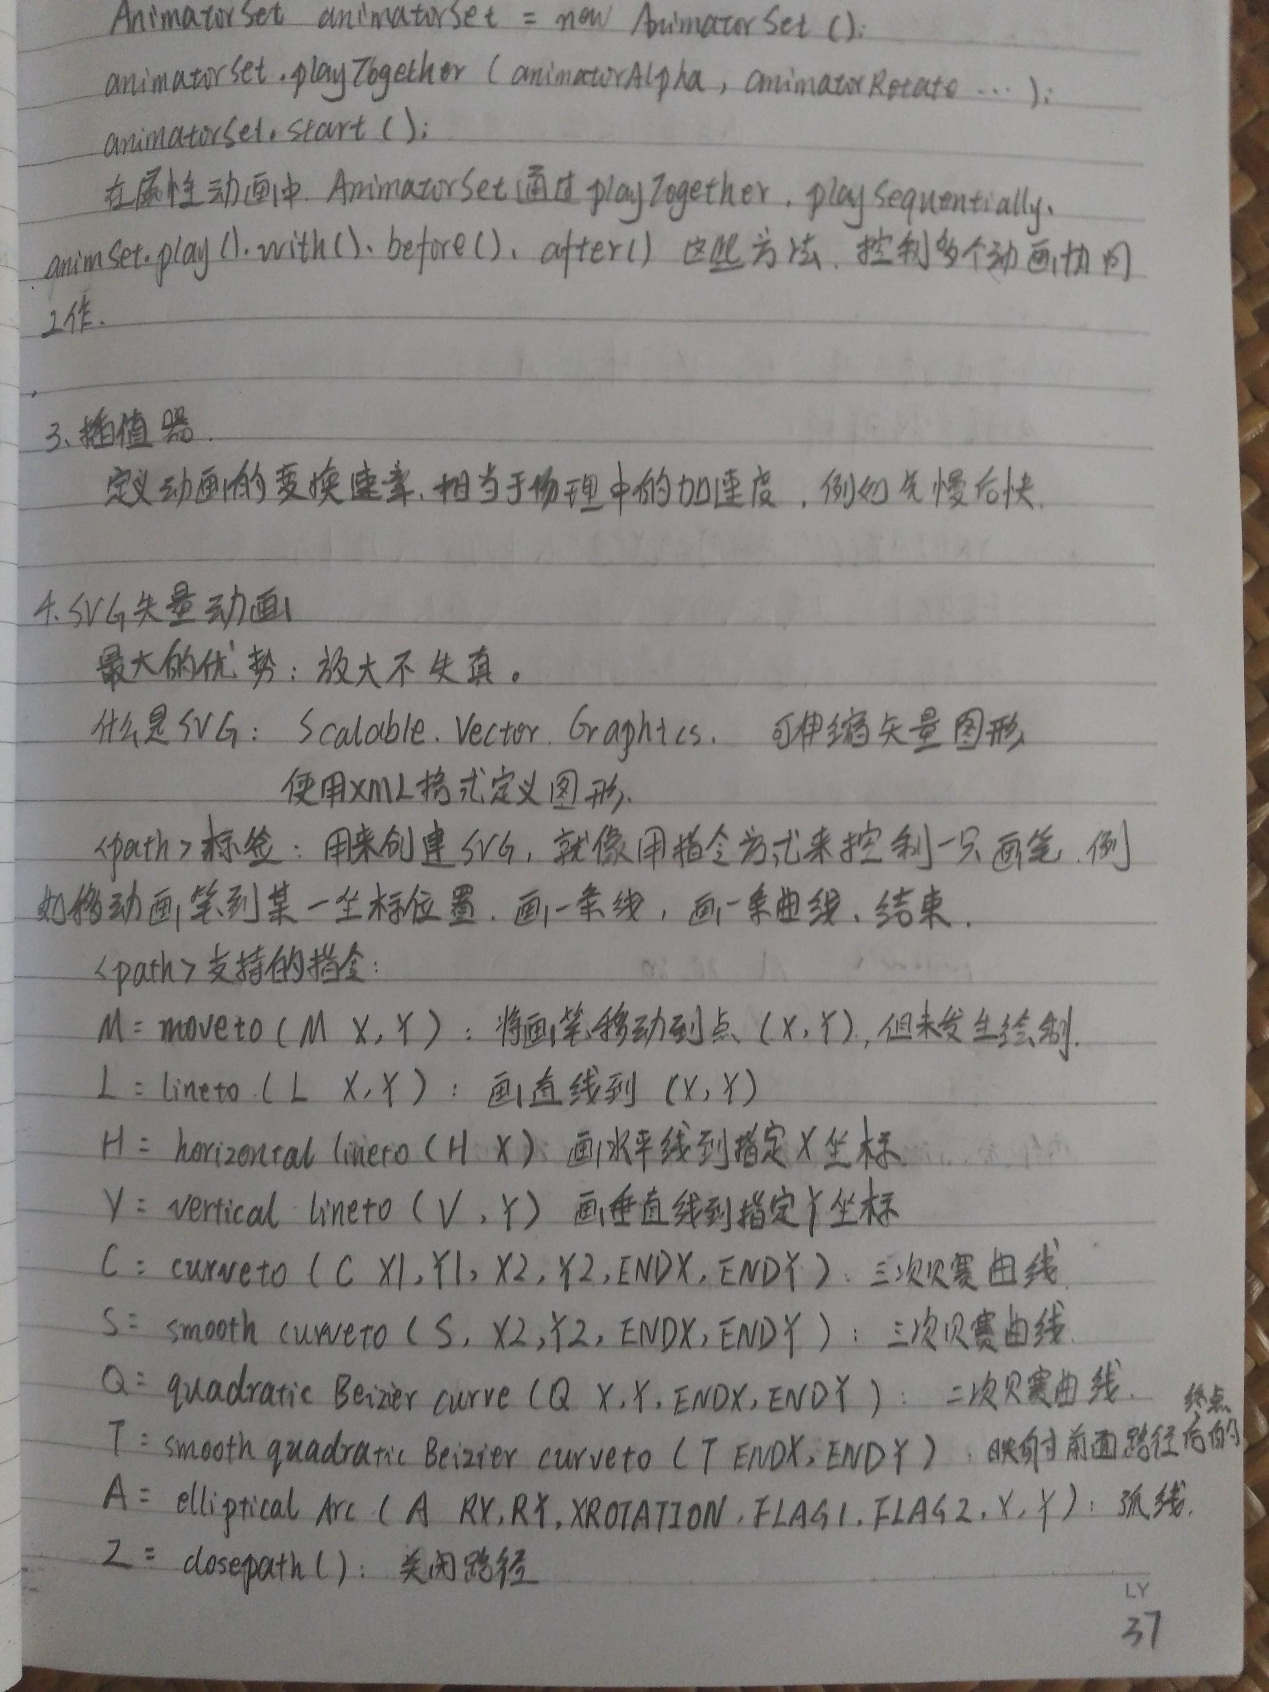 AnimatorSet animatorSet = new AnimatorSet ();
animatorSet.playTogether (animatorAlpha, animatorRotate ... );
animatorSet.start ();
在属性动画中. AnimatorSet通过playTogether, playSequentially、
animSet.play().with()、before()、after() 这些方法, 控制多个动画协同
工作.
3、插值器.
定义动画的变换速率, 相当于物理中的加速度, 例如先慢后快.
4.SVG矢量动画
最大的优势: 放大不失真。
什么是SVG: Scalable. Vector. Graphics. 可伸缩矢量图形
使用XML格式定义图形.
<path>标签: 用来创建SVG, 就像用指令方式来控制一只画笔, 例
如移动画笔到某一坐标位置, 画一条线, 画一条曲线、结束.
<path>支持的指令:
M = moveto (M X,Y): 将画笔移动到点 (X,Y), 但未发生绘制.
L = lineto (L X,Y): 画直线到 (X,Y)
H = horizontal lineto (H X) 画水平线到指定X坐标
V = vertical lineto (V,Y) 画垂直线到指定Y坐标
C = curveto (C X1,Y1,X2,Y2,ENDX,ENDY): 三次贝赛曲线
S = smooth curveto (S, X2,Y2,ENDX,ENDY): 三次贝赛曲线
Q = quadratic Beizier curve (Q X,Y,ENDX,ENDY): 二次贝赛曲线.
T = smooth quadratic Beizier curveto (T ENDX,ENDY): 映射前面路径后的终点
A = elliptical Arc (A RX,RY,XROTATION,FLAG1,FLAG2,X,Y): 弧线.
Z = closepath(): 关闭路径
LY
37